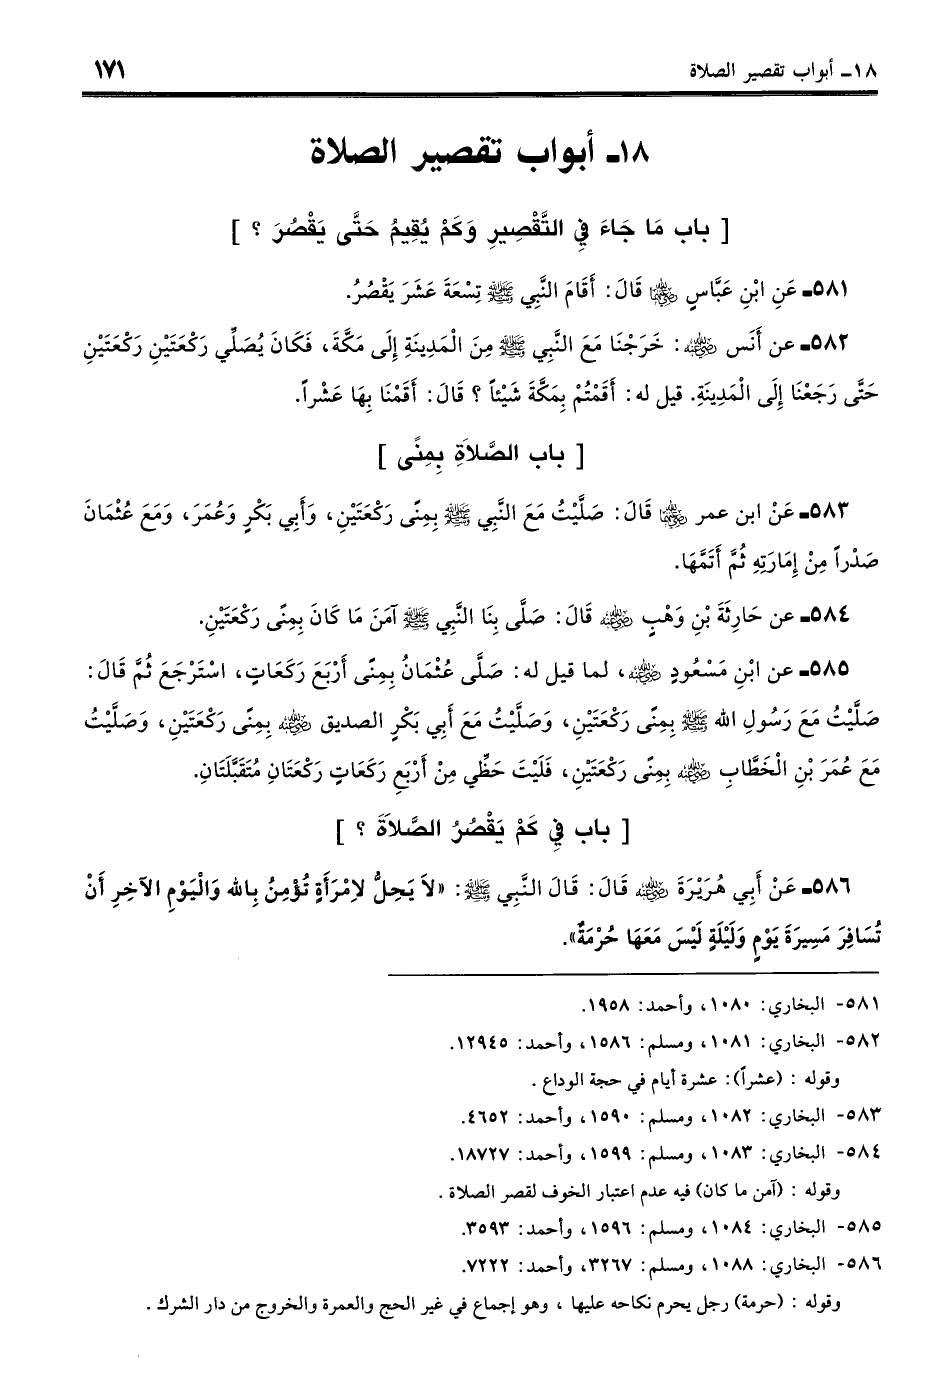 ١٨ـ أبواب تقصير الصلاة ١٧١
١٨ـ أبواب تقصير الصلاة
[ باب مَا جَاءَ فِي التَّقْصِيرِ وَكَمْ يُقِيمُ حَتَّى يَقْصُرَ ؟ ]
٥٨١ـ عَنِ ابْنِ عَبَّاسٍ رضي الله عنهما قَالَ: أَقَامَ النَّبِي ﷺ تِسْعَةَ عَشَرَ يَقْصُرُ.
٥٨٢ـ عن أَنَس رضي الله عنه: خَرَجْنَا مَعَ النَّبِي ﷺ مِنَ الْمَدِينَةِ إِلَى مَكَّةَ، فَكَانَ يُصَلِّي رَكْعَتَيْنِ رَكْعَتَيْنِ
حَتَّى رَجَعْنَا إِلَى الْمَدِينَةِ. قيل له: أَقَمْتُمْ بِمَكَّةَ شَيْئاً ؟ قَالَ: أَقَمْنَا بِهَا عَشْراً.
[ باب الصَّلاَةِ بِمِنًى ]
٥٨٣ـ عَنْ ابن عمر رضي الله عنهما قَالَ: صَلَّيْتُ مَعَ النَّبِي ﷺ بِمِنًى رَكْعَتَيْنِ، وَأَبِي بَكْرٍ وَعُمَرَ، وَمَعَ عُثْمَانَ
صَدْراً مِنْ إِمَارَتِهِ ثُمَّ أَتَمَّهَا.
٥٨٤ـ عن حَارِثَةَ بْنِ وَهْبٍ رضي الله عنه قَالَ: صَلَّى بِنَا النَّبِي ﷺ آمَنَ مَا كَانَ بِمِنًى رَكْعَتَيْنِ.
٥٨٥ـ عن ابْنِ مَسْعُودٍ رضي الله عنه، لما قيل له: صَلَّى عُثْمَانُ بِمِنًى أَرْبَعَ رَكَعَاتٍ، اسْتَرْجَعَ ثُمَّ قَالَ:
صَلَّيْتُ مَعَ رَسُولِ الله ﷺ بِمِنًى رَكْعَتَيْنِ، وَصَلَّيْتُ مَعَ أَبِي بَكْرٍ الصديق رضي الله عنه بِمِنًى رَكْعَتَيْنِ، وَصَلَّيْتُ
مَعَ عُمَرَ بْنِ الْخَطَّابِ رضي الله عنه بِمِنًى رَكْعَتَيْنِ، فَلَيْتَ حَظِّي مِنْ أَرْبَعِ رَكَعَاتٍ رَكْعَتَانِ مُتَقَبَّلَتَانِ.
[ باب فِي كَمْ يَقْصُرُ الصَّلاَةَ ؟ ]
٥٨٦ـ عَنْ أَبِي هُرَيْرَةَ رضي الله عنه قَالَ: قَالَ النَّبِي ﷺ: «لاَ يَحِلُّ لاِمْرَأَةٍ تُؤْمِنُ بِالله وَالْيَوْمِ الآخِرِ أَنْ
تُسَافِرَ مَسِيرَةَ يَوْمٍ وَلَيْلَةٍ لَيْسَ مَعَهَا حُرْمَةٌ».
٥٨١- البخاري: ١٠٨٠، وأحمد: ١٩٥٨.
٥٨٢- البخاري: ١٠٨١، ومسلم: ١٥٨٦، وأحمد: ١٢٩٤٥.
وقوله : (عشراً): عشرة أيام في حجة الوداع .
٥٨٣- البخاري: ١٠٨٢، ومسلم: ١٥٩٠، وأحمد: ٤٦٥٢.
٥٨٤- البخاري: ١٠٨٣، ومسلم: ١٥٩٩، وأحمد: ١٨٧٢٧.
وقوله : (آمن ما كان) فيه عدم اعتبار الخوف لقصر الصلاة .
٥٨٥- البخاري: ١٠٨٤، ومسلم: ١٥٩٦، وأحمد: ٣٥٩٣.
٥٨٦- البخاري: ١٠٨٨، ومسلم: ٣٢٦٧، وأحمد: ٧٢٢٢.
وقوله : (حرمة) رجل يحرم نكاحه عليها ، وهو إجماع في غير الحج والعمرة والخروج من دار الشرك .